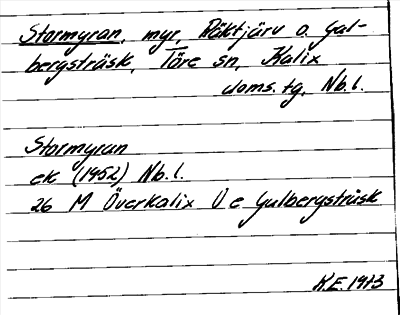 Stormyran, myr, Räktjärv o. Gul-
bergsträsk, Töre sn, Kalix
doms. tg, Nb. l.
Stormyran
ek (1952) Nb. l.
26 M Överkalix U e Gulbergsträsk
K.E. 1973